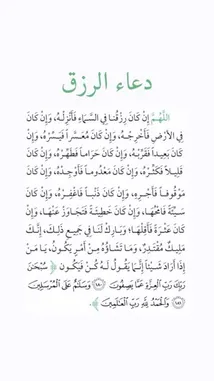 دعاء الرزق
اللَّهُمَّ إِنْ كَانَ رِزْقُنَا فِي السَّمَاءِ فَأَنْزِلْهُ، وَإِنْ كَانَ
فِي الأَرْضِ فَأَخْرِجْهُ، وَإِنْ كَانَ مُعَسَّراً فَيَسِّرْهُ، وَإِنْ
كَانَ بَعِيداً فَقَرِّبْهُ، وَإِنْ كَانَ حَرَاماً فَطَهِّرْهُ، وَإِنْ كَانَ
قَلِيلاً فَكَثِّرْهُ، وَإِنْ كَانَ مَعْدُوماً فَأَوْجِدْهُ، وَإِنْ كَانَ
مَوْقُوفاً فَأَجْرِهِ، وَإِنْ كَانَ ذَنْباً فَاغْفِرْهُ، وَإِنْ كَانَ
سَيِّئَةً فَامْحُهَا، وَإِنْ كَانَ خَطِيئَةً فَتَجَاوَزْ عَنْهَا، وَإِنْ
كَانَ عَثْرَةً فَأَقِلْهَا، وَبَارِكْ لَنَا فِي جَمِيعِ ذَلِكَ، إِنَّكَ
مَلِيكٌ مُقْتَدِرٌ، وَمَا تَشَاؤُهُ مِنْ أَمْرٍ يَكُونُ، يَا مَنْ
إِذَا أَرَادَ شَيْئاً إِنَّمَا يَقُولُ لَهُ كُنْ فَيَكُون ﴿ سُبْحَٰنَ
رَبِّكَ رَبِّ الْعِزَّةِ عَمَّا يَصِفُونَ ١٨٠ وَسَلَٰمٌ عَلَى الْمُرْسَلِينَ
١٨١ وَالْحَمْدُ لِلَّهِ رَبِّ الْعَٰلَمِينَ ﴾.